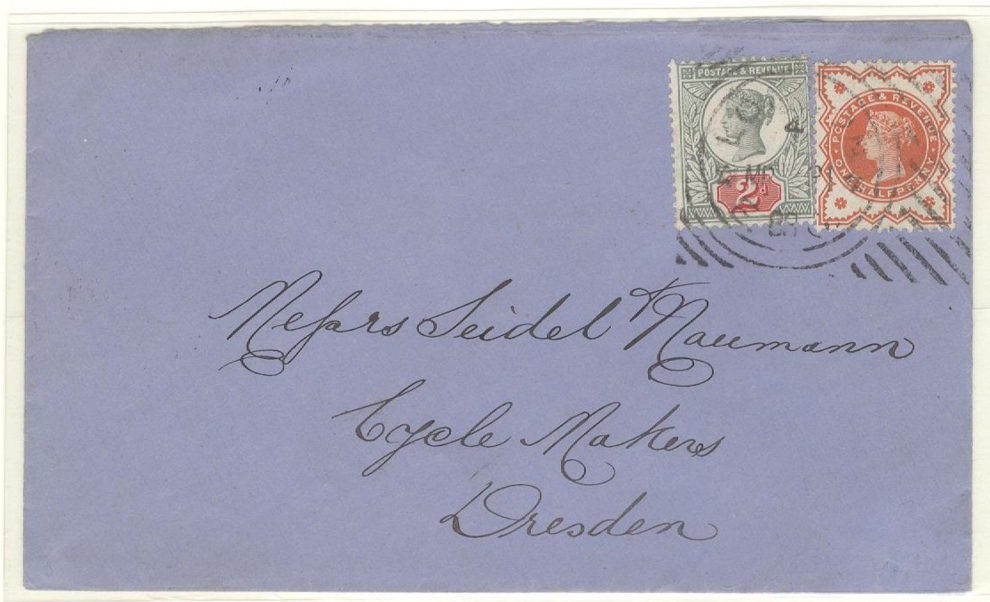 POSTAGE & REVENUE
2d
POSTAGE & REVENUE
ONE HALFPENNY
4
Messrs Seidel & Naumann
Cycle Makers
Dresden